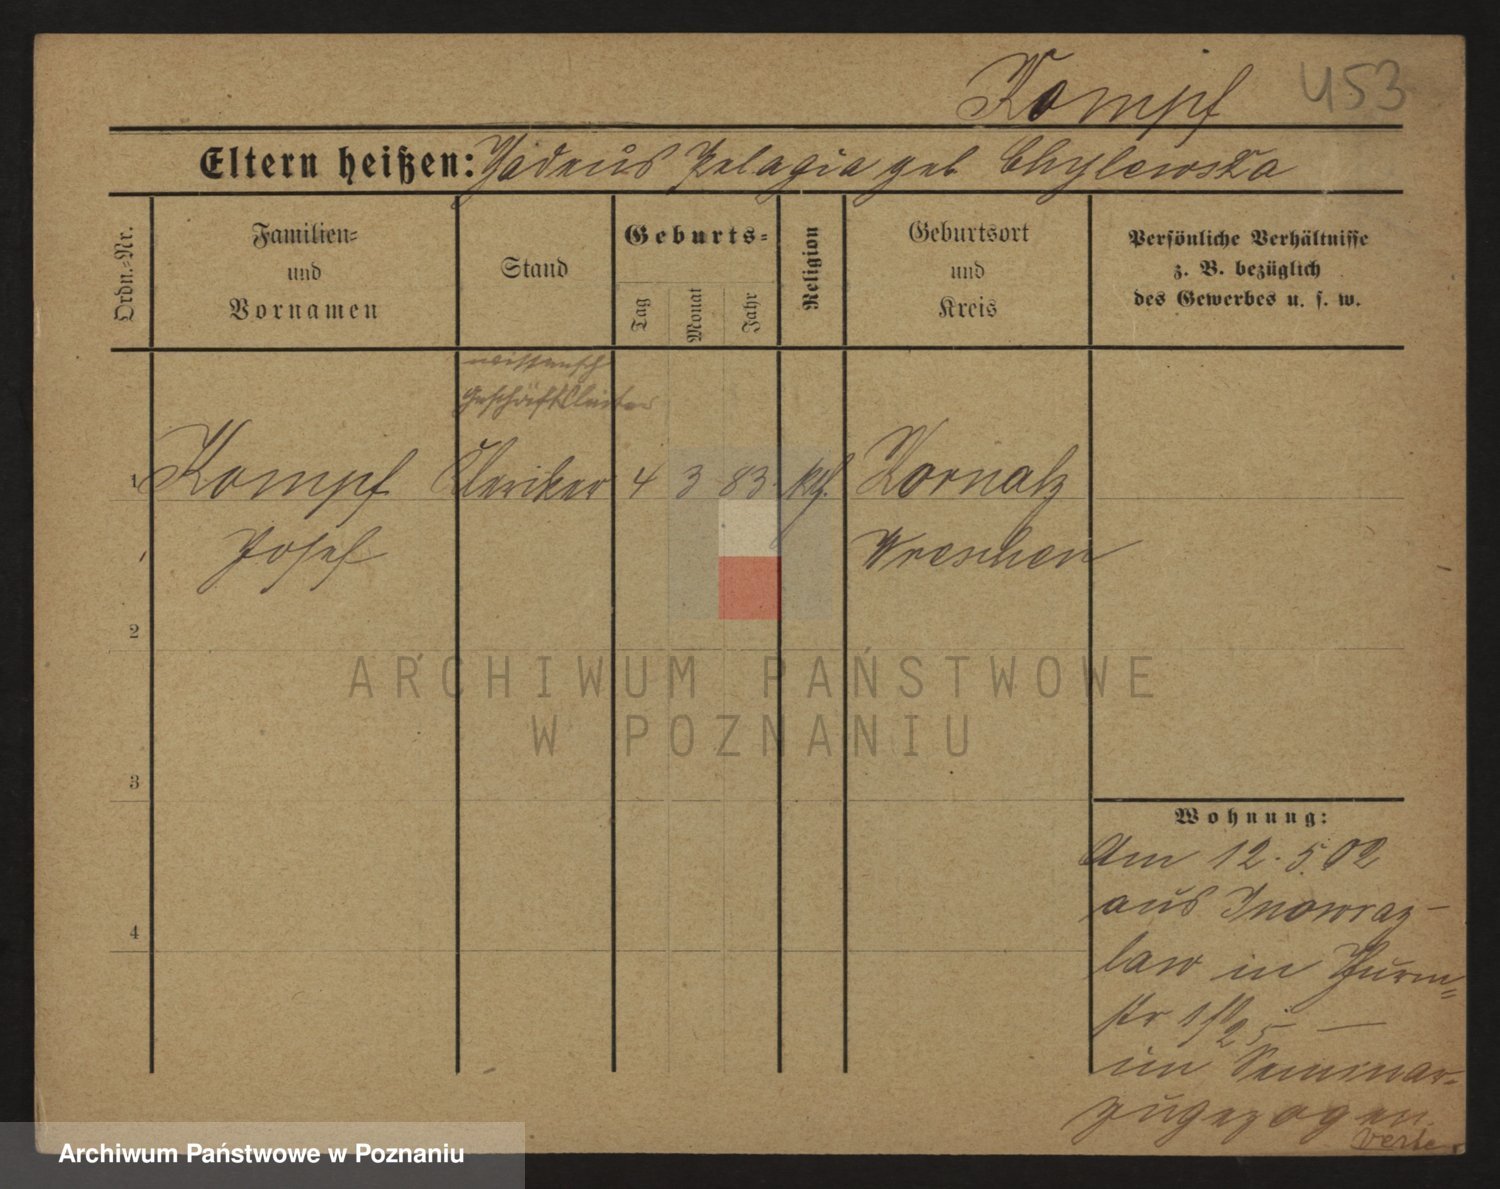 Kompf 453
Eltern heißen: Thadeus Pelagia geb Chylewska
Ordn.-Nr.
Familien- und Vornamen
Stand
Geburts-
Tag
Monat
Jahr
Religion
Geburtsort und Kreis
Persönliche Verhältnisse z. B. bezüglich des Gewerbes u. s. w.
Geschäftsleiter
1 Kompf Kleriker 4 3 83. kth. Kornaty
Josef Wreschen
2
3
4
ARCHIWUM PAŃSTWOWE
W POZNANIU
Wohnung:
Am 12.5.02
aus Inowraz-
law in Thurm-
str
im Seminar
zugezogen.
verte
Archiwum Państwowe w Poznaniu